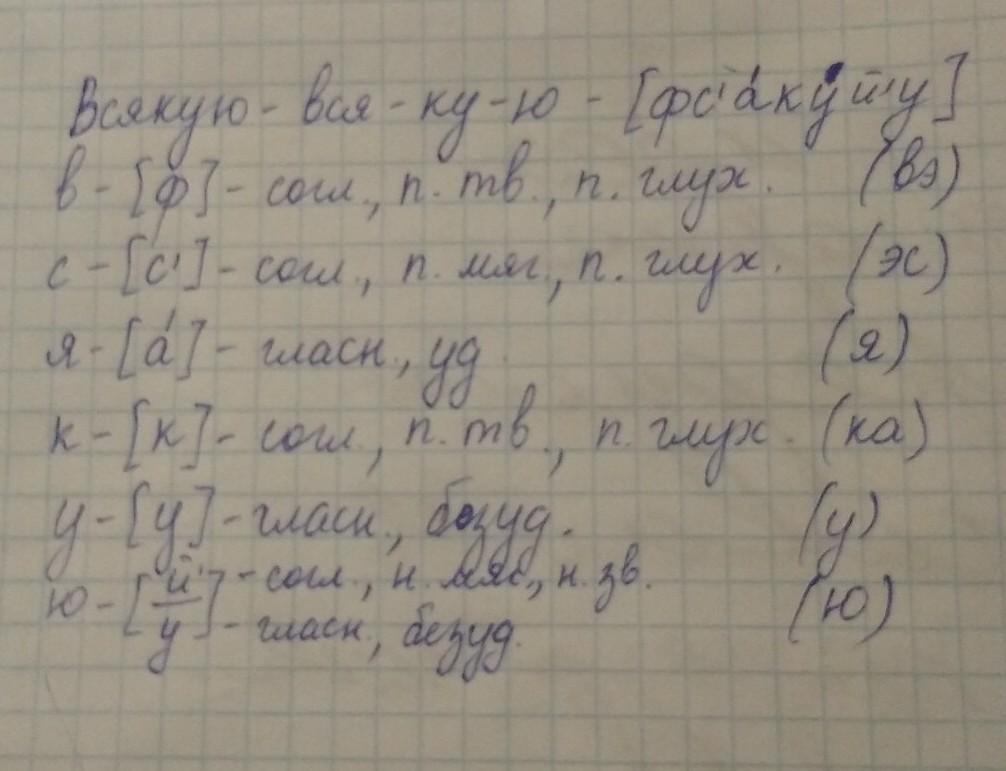 Всякую - вся - ку - ю - [фс'а́куй'у]
в - [ф] - согл., п. тв., п. глух. (вэ)
с - [с'] - согл., п. мяг., п. глух. (эс)
я - [а́] - гласн., уд. (я)
к - [к] - согл., п. тв., п. глух. (ка)
у - [у] - гласн., безуд. (у)
ю - [й' - согл., н. мяг., н. зв. (ю)
у] - гласн., безуд.